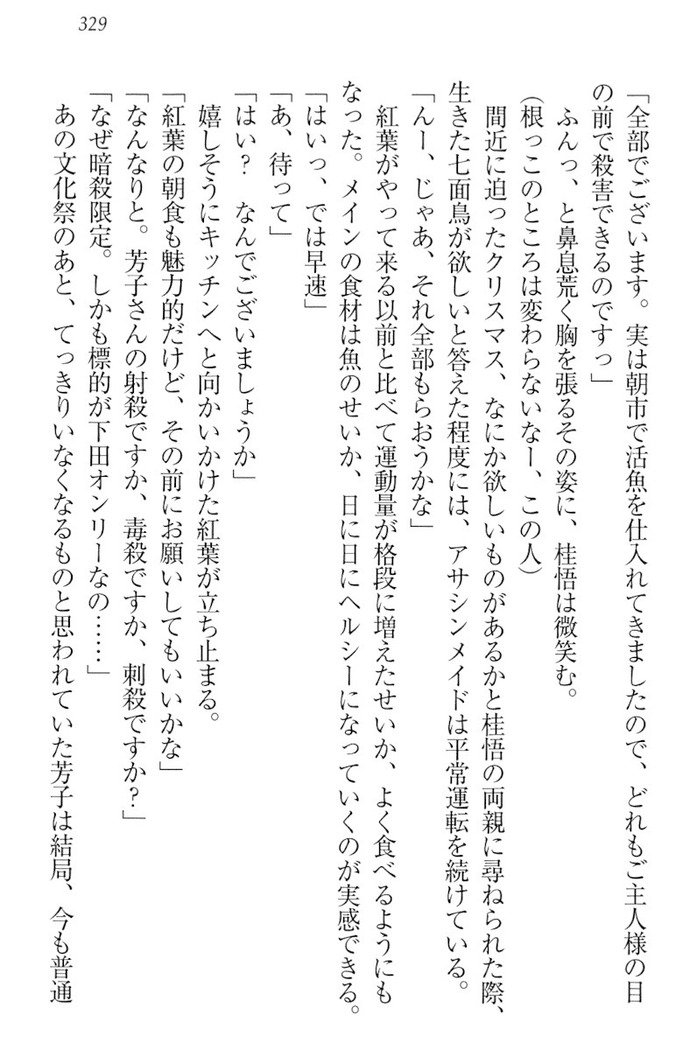 329
「全部でございます。実は朝市で活魚を仕入れてきましたので、どれもご主人様の目
の前で殺害できるのですっ」
ふんっ、と鼻息荒く胸を張るその姿に、桂悟は微笑む。
(根っこのところは変わらないなー、この人)
間近に迫ったクリスマス、なにか欲しいものがあるかと桂悟の両親に尋ねられた際、
生きた七面鳥が欲しいと答えた程度には、アサシンメイドは平常運転を続けている。
「んー、じゃあ、それ全部もらおうかな」
紅葉がやって来る以前と比べて運動量が格段に増えたせいか、よく食べるようにも
なった。メインの食材は魚のせいか、日に日にヘルシーになっていくのが実感できる。
「はいっ、では早速」
「あ、待って」
「はい？　なんでございましょうか」
嬉しそうにキッチンへと向かいかけた紅葉が立ち止まる。
「紅葉の朝食も魅力的だけど、その前にお願いしてもいいかな」
「なんなりと。芳子さんの射殺ですか、毒殺ですか、刺殺ですか？」
「なぜ暗殺限定。しかも標的が下田オンリーなの……」
あの文化祭のあと、てっきりいなくなるものと思われていた芳子は結局、今も普通